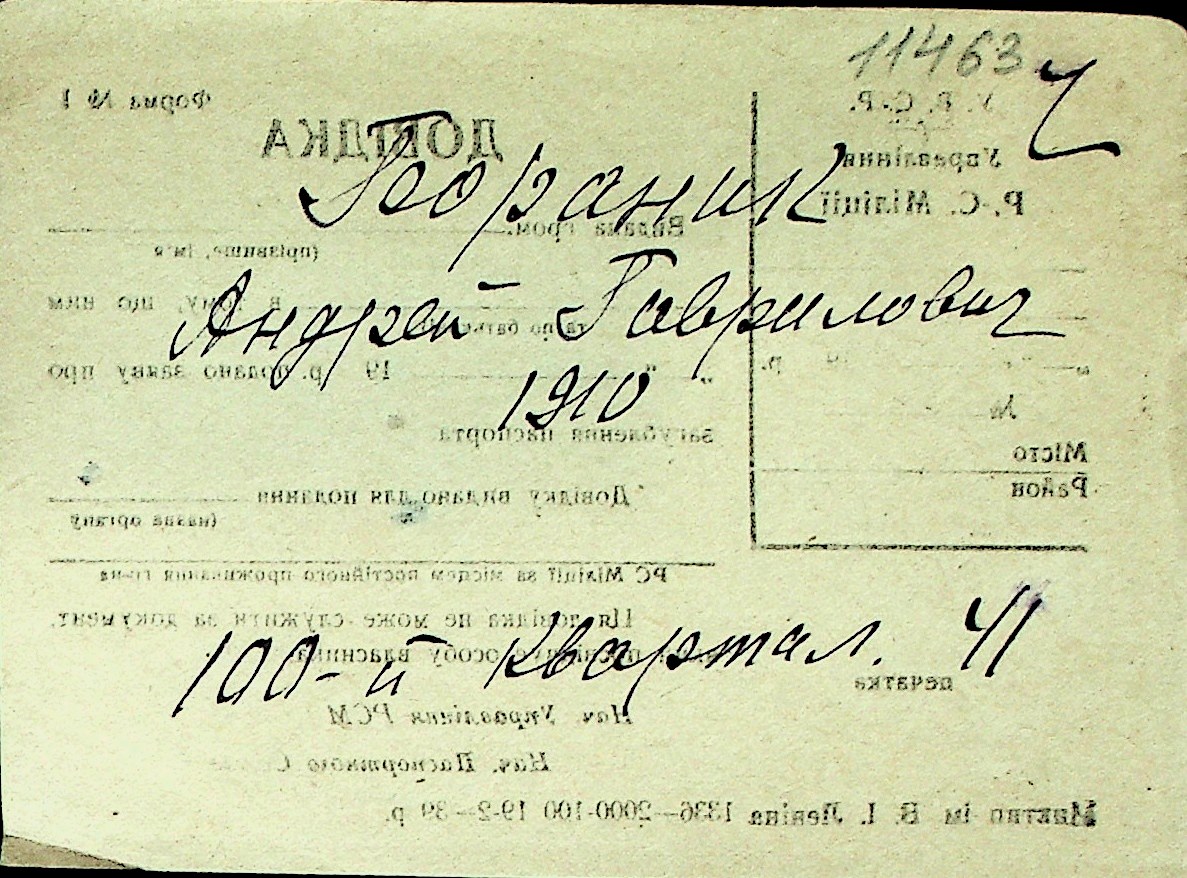 11463
Андрей Гаврилович
1910
100-й квартал. 41
У. Р. С. Р.
Управління
Р.-С. Міліції
№
Місто
Район
Форма № 1
ДОВІДКА
Видана гром.
(прізвище, ім'я
та по батькові)
в тому, що ним
„ “ 19 р. подано заяву про
загублення паспорта
Довідку видано для подання
(назва органу
РС Міліції за місцем постійного проживання гр-на
Ця довідка не може служити за документ,
особу власника
печатка
Нач. Управління РСМ
Нач. Паспортного С
Миктип ім В. І. Леніна 1336—2000-100 19-2—39 р.